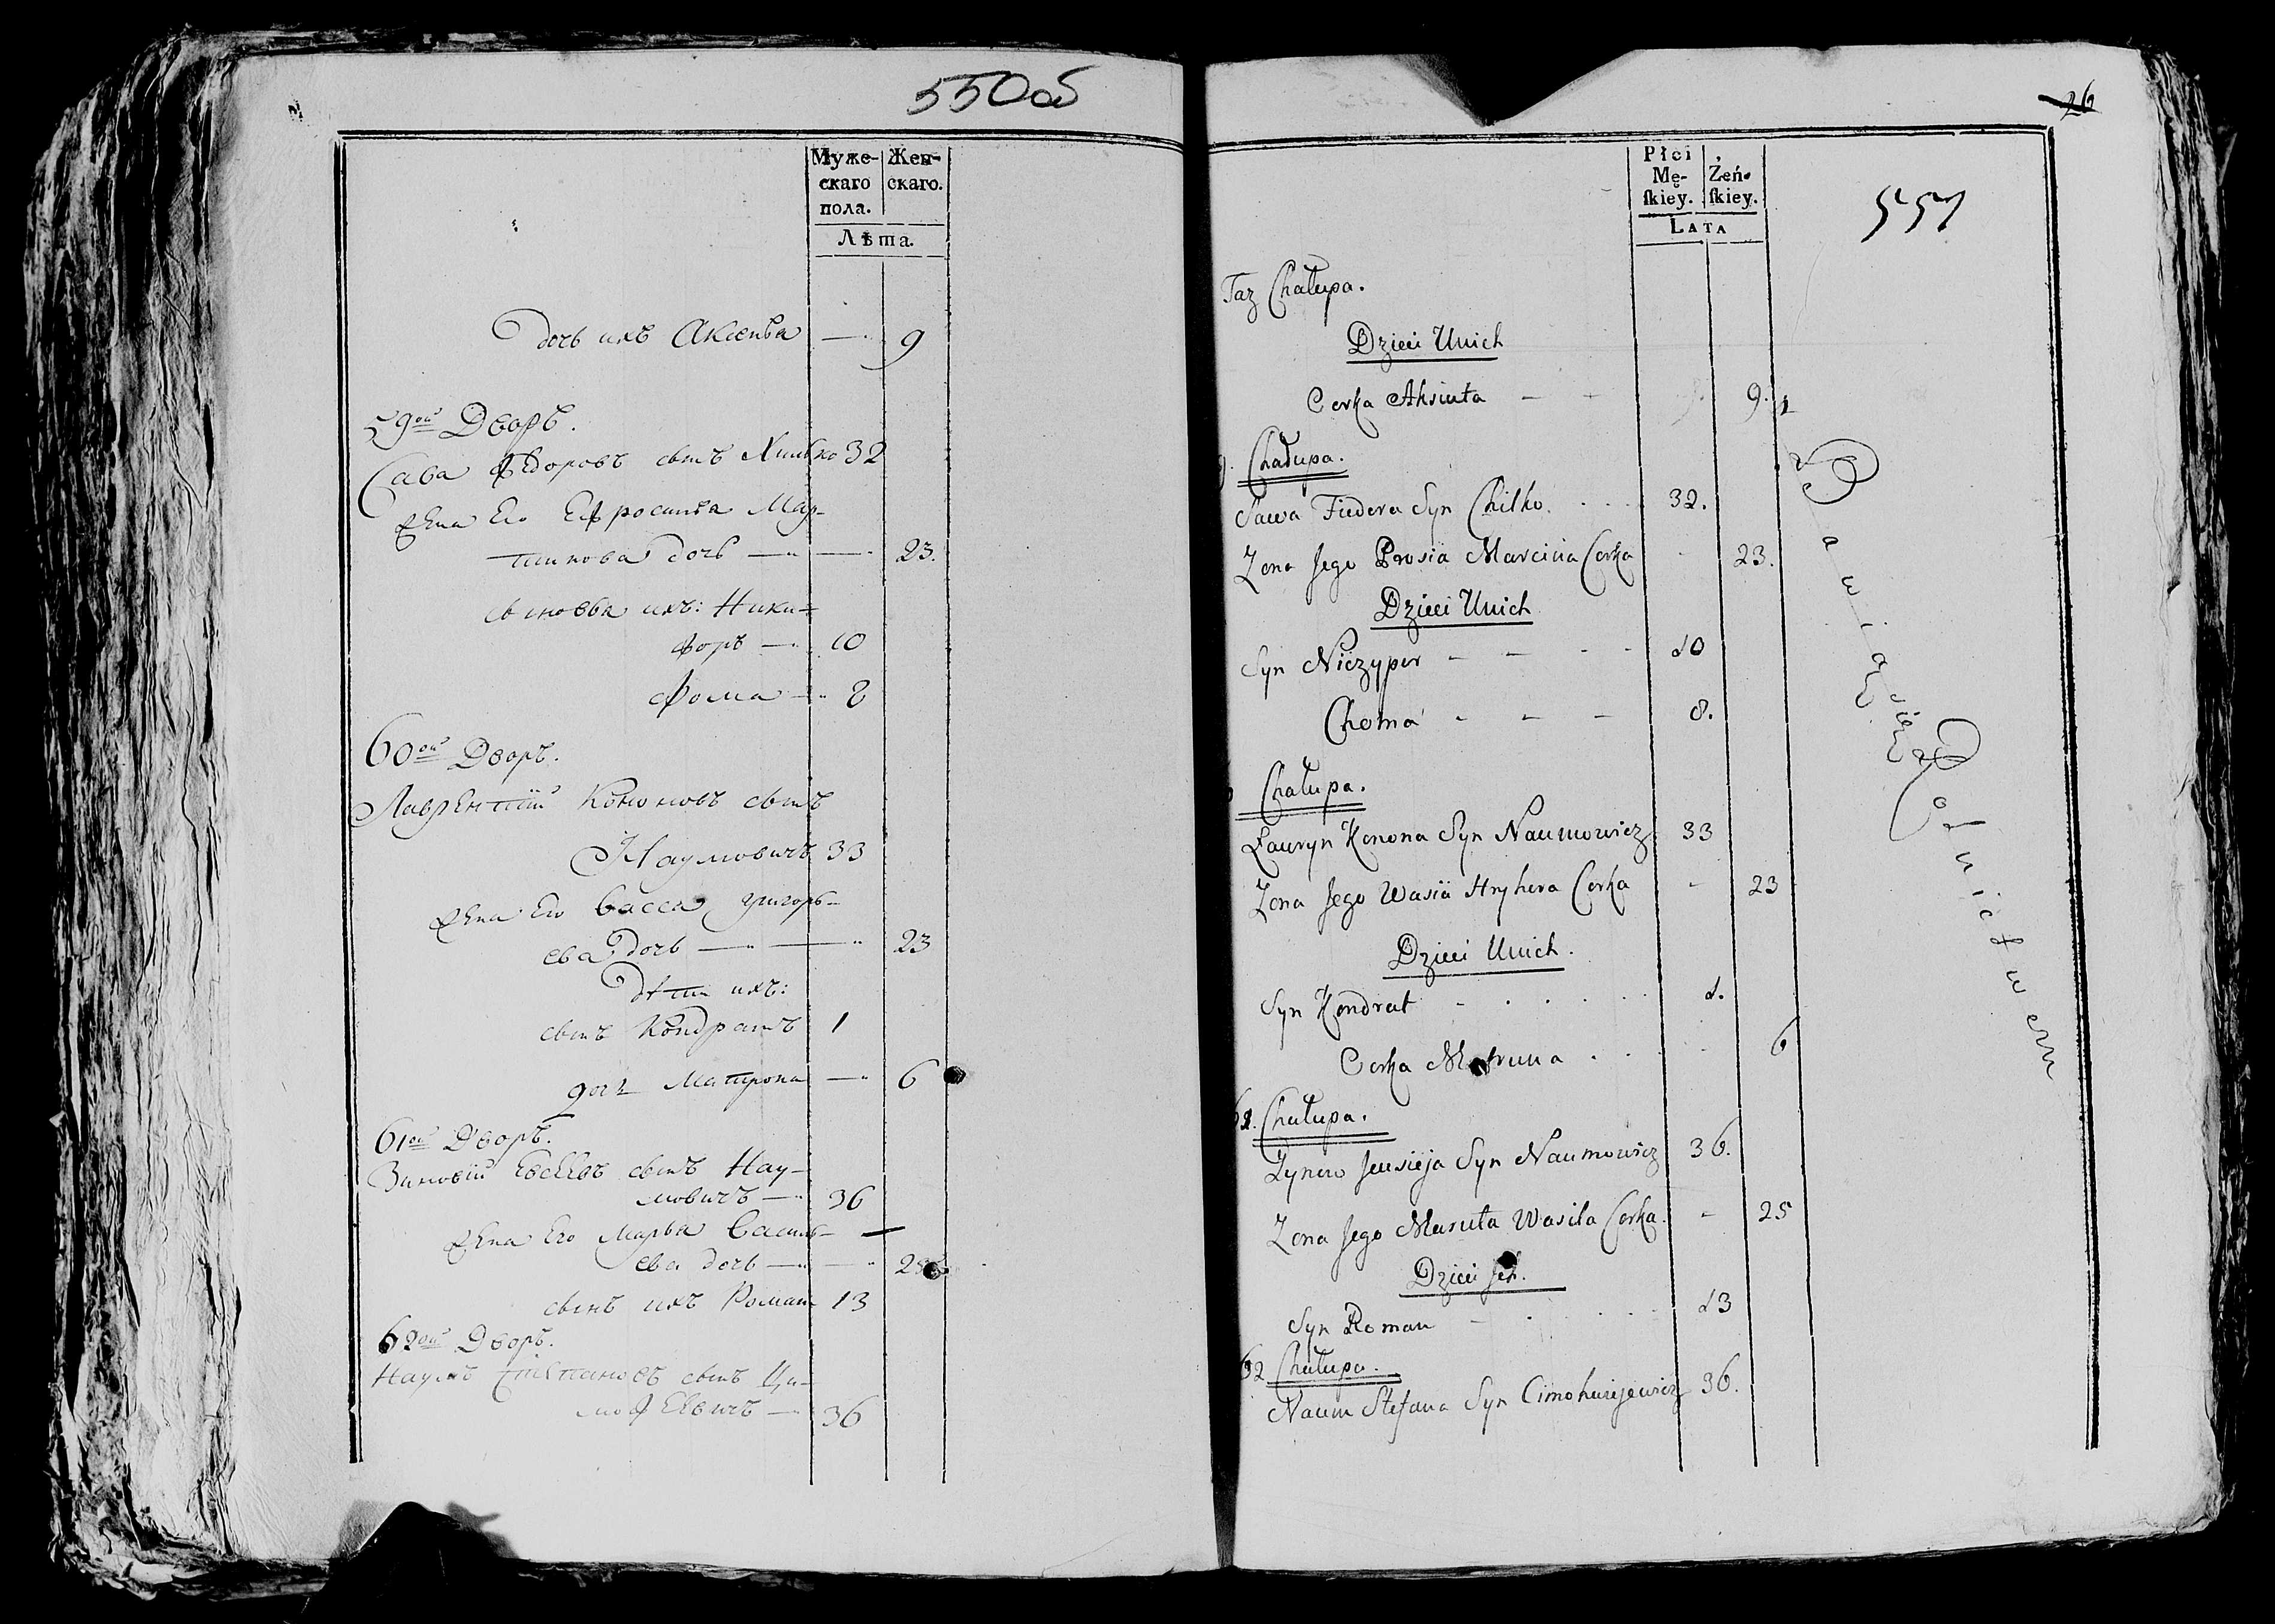 550об
Муже-
скаго
пола.
Жен-
скаго.
Лѣта.
Дочь ихъ Аксенья — 9
59ой Дворъ.
Сава Ѳедоровъ сынъ Хилько 32
Жена Его Ефросинья Мар-
тинова дочь — — 23.
сыновья ихъ: Ники-
форъ — 10
Фома — 8
60ой Дворъ.
Лаврентий Кононовъ сынъ
Наумовичъ 33
Жена Его Васса Григорь-
ева дочь — — 23
Дѣти ихъ:
сынъ Кондратъ 1
дочь Матрона — 6
61ой Дворъ.
Зиновий Евсеевъ сынъ Нау-
мовичъ — 36
Жена Его Марья Василь-
ева дочь — — 25
сынъ ихъ Роман 13
62ой Дворъ.
Наумъ Степановъ сынъ Ци-
мофеевичъ — 36
26
551
Płci
Mę-
ſkiey.
Żeń-
ſkiey.
LATA
Taz Chałupa.
Dzieci Unich
Corka Aksiuta — - 9. 1
Chałupa.
Sawa Fiedora Syn Chilko. 32.
Zona Jego Prosia Marcina Corka - 23.
Dzieci Unich
Syn Niczypor - - - - 10
Choma - - - 8.
Chałupa.
Ławryn Konona Syn Naumowicz 33
Zona Jego Wasia Hryhora Corka - 23
Dzieci Unich.
Syn Kondrat - 1.
Corka Matruna 6
61. Chałupa.
Zynowo Jeusieja Syn Naumowicz 36.
Zona Jego Maruta Wasila Corka. - 25
Dzieci Jch.
Syn Roman - 13
62 Chałupa.
Naum Stefana Syn Cimohwiejewicz 36.